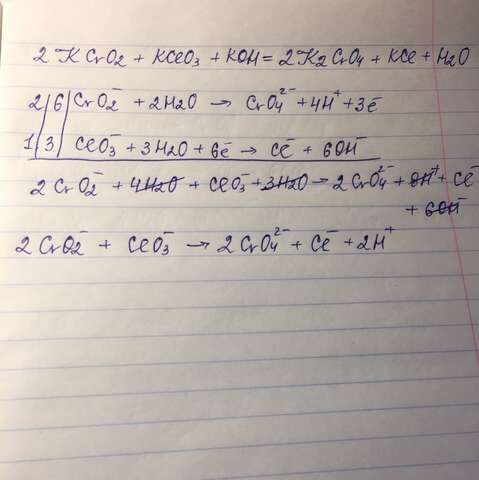 2 KCrO2 + KClO3 + KOH = 2K2CrO4 + KCl + H2O
2 | 6 | CrO2⁻ + 2H2O → CrO4²⁻ + 4H⁺ + 3ē
1 | 3 | ClO3⁻ + 3H2O + 6ē → Cl⁻ + 6OH⁻
2 CrO2⁻ + 4H2O + ClO3⁻ + 3H2O → 2 CrO4²⁻ + 8H⁺ + Cl⁻
+ 6OH⁻
2 CrO2⁻ + ClO3⁻ → 2 CrO4²⁻ + Cl⁻ + 2H⁺